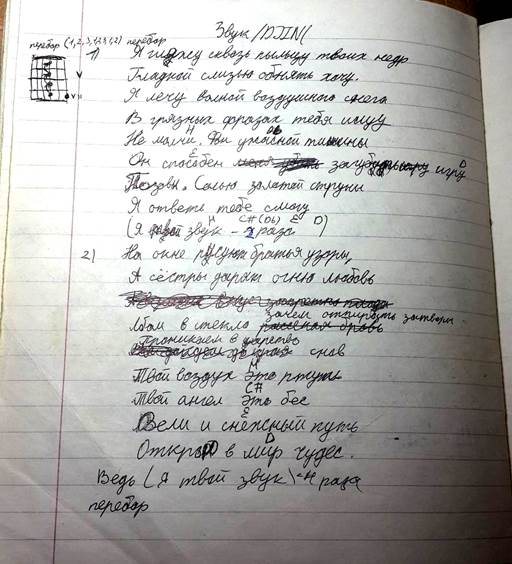 Звук /DJIN(
перебор (1,2,3,1,2,3,1,2) перебор
1) Я гляжу сквозь пыльцу твоих недр
Гладкой слизью обнять хочу.
V
Я лечу волной воздушного снега
VII
В грязных фразах тебя ищу
H Db
Не молчи. Дви ужасной тишины
E D
Он способен загубить игру
Позови. Солью золотой струны
Я ответи тебе смогу
H C#(Db) E D
(Я твой звук - 2 раза)
2) На окне рисуют братья узоры,
А сёстры дарят огню любовь
зачем открывать затворы
Лбом в стекло
Проникаем в царство
снов
H
Твой воздух это ртуть
C#
Твой ангел это бес
E
Вели и снежный путь
D
Открой в мир чудес.
Ведь (Я твой звук) -4 раза
перебор